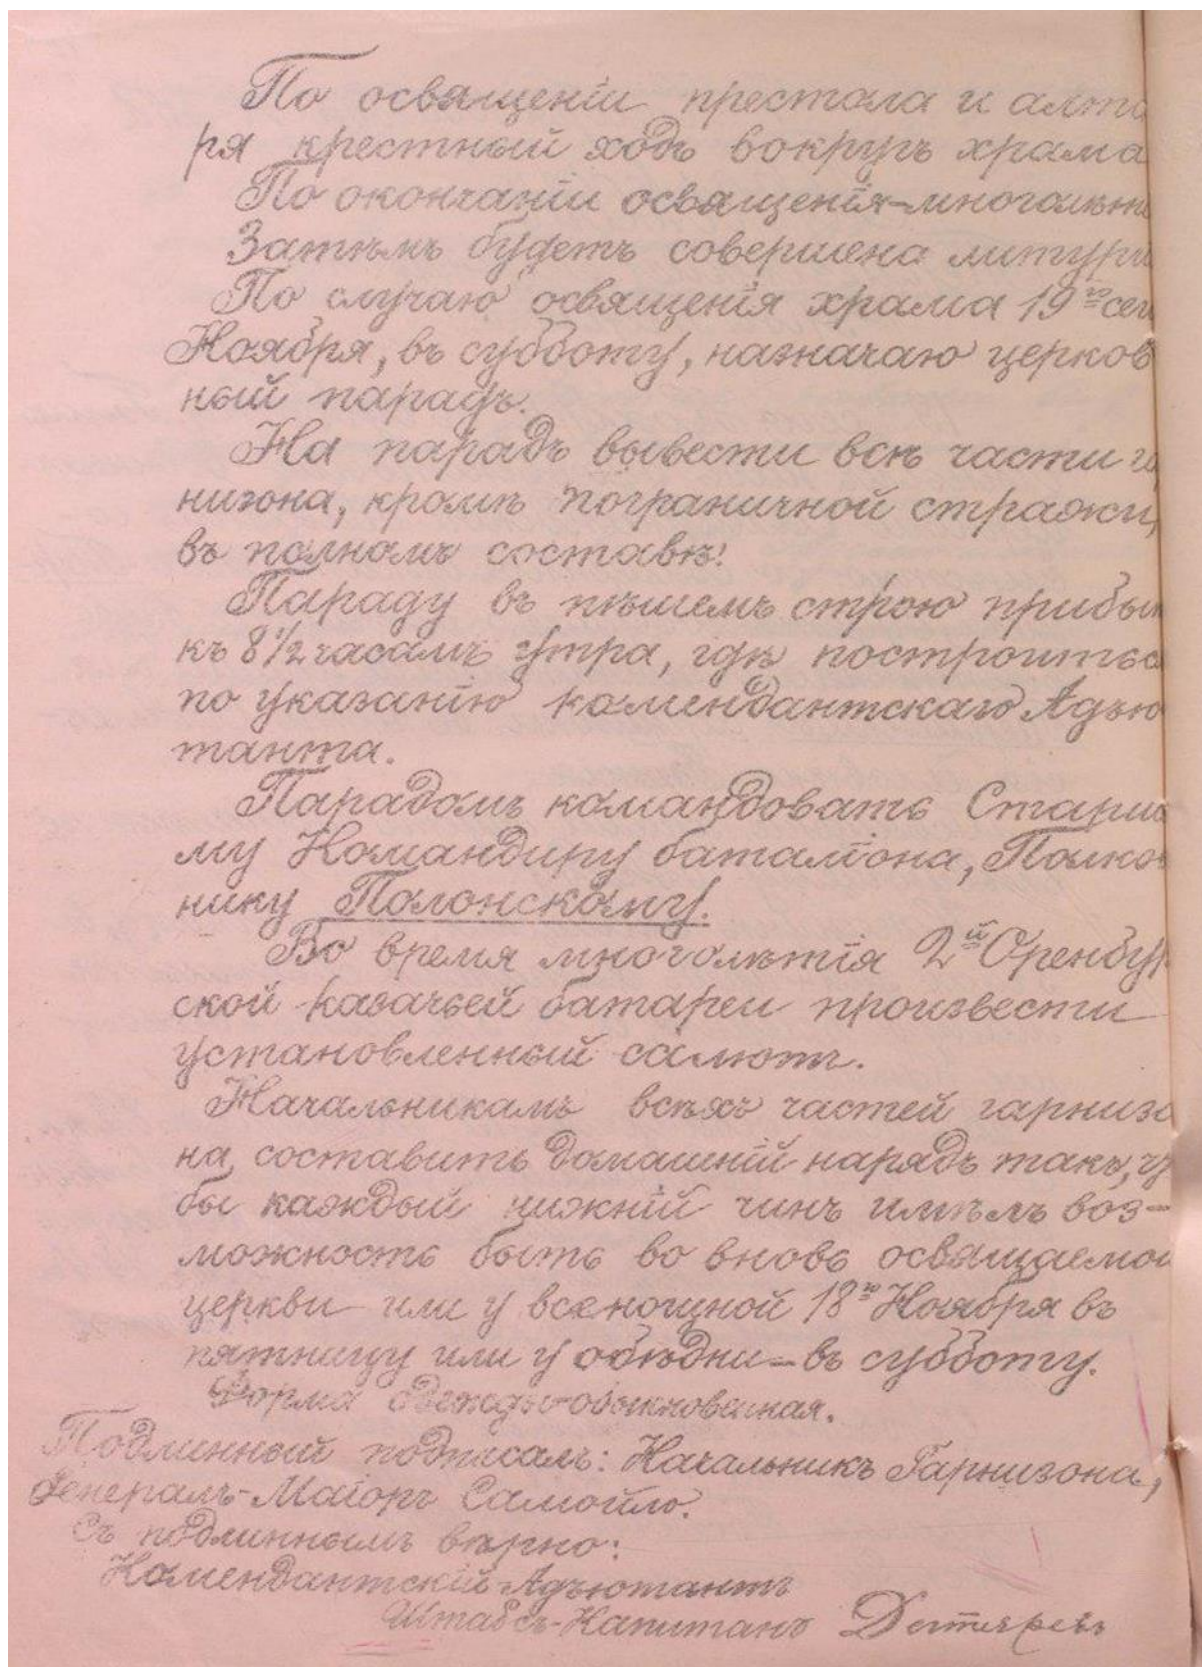 По освященіи престола и алта
ря крестный ходъ вокругъ храма
По окончаніи освященія-многолѣті
Затѣмъ будетъ совершена литургі
По случаю освященія храма 19го сег
Ноября, въ субботу, назначаю церков
ный парадъ.
На парадъ вывести всѣ части га
низона, кромѣ пограничной стражи,
въ полномъ составѣ.
Параду въ пѣшемъ строю прибы
къ 8 1/2 часамъ утра, гдѣ построитьс
по указанію комендантскаго Адъю
танта.
Парадомъ командовать Старше
му Командиру баталіона, Полков
нику Полонскому.
Во время многолѣтія 2й Оренбур
ской казачьей батареи произвести
установленный салютъ.
Начальникамъ всѣхъ частей гарнизо
на составить домашній нарядъ такъ, чт
бы каждый нижній чинъ имѣлъ воз-
можность быть во вновь освящаемой
церкви или у всенощной 18го Ноября въ
пятницу или у обѣдни-въ субботу.
Форма одежды-обыкновенная.
Подлинный подписалъ: Начальникъ Гарнизона,
Генералъ-Маіоръ Самойло.
Съ подлиннымъ вѣрно:
Комендантскій Адъютантъ
Штабсъ-Капитанъ Дегтяревъ